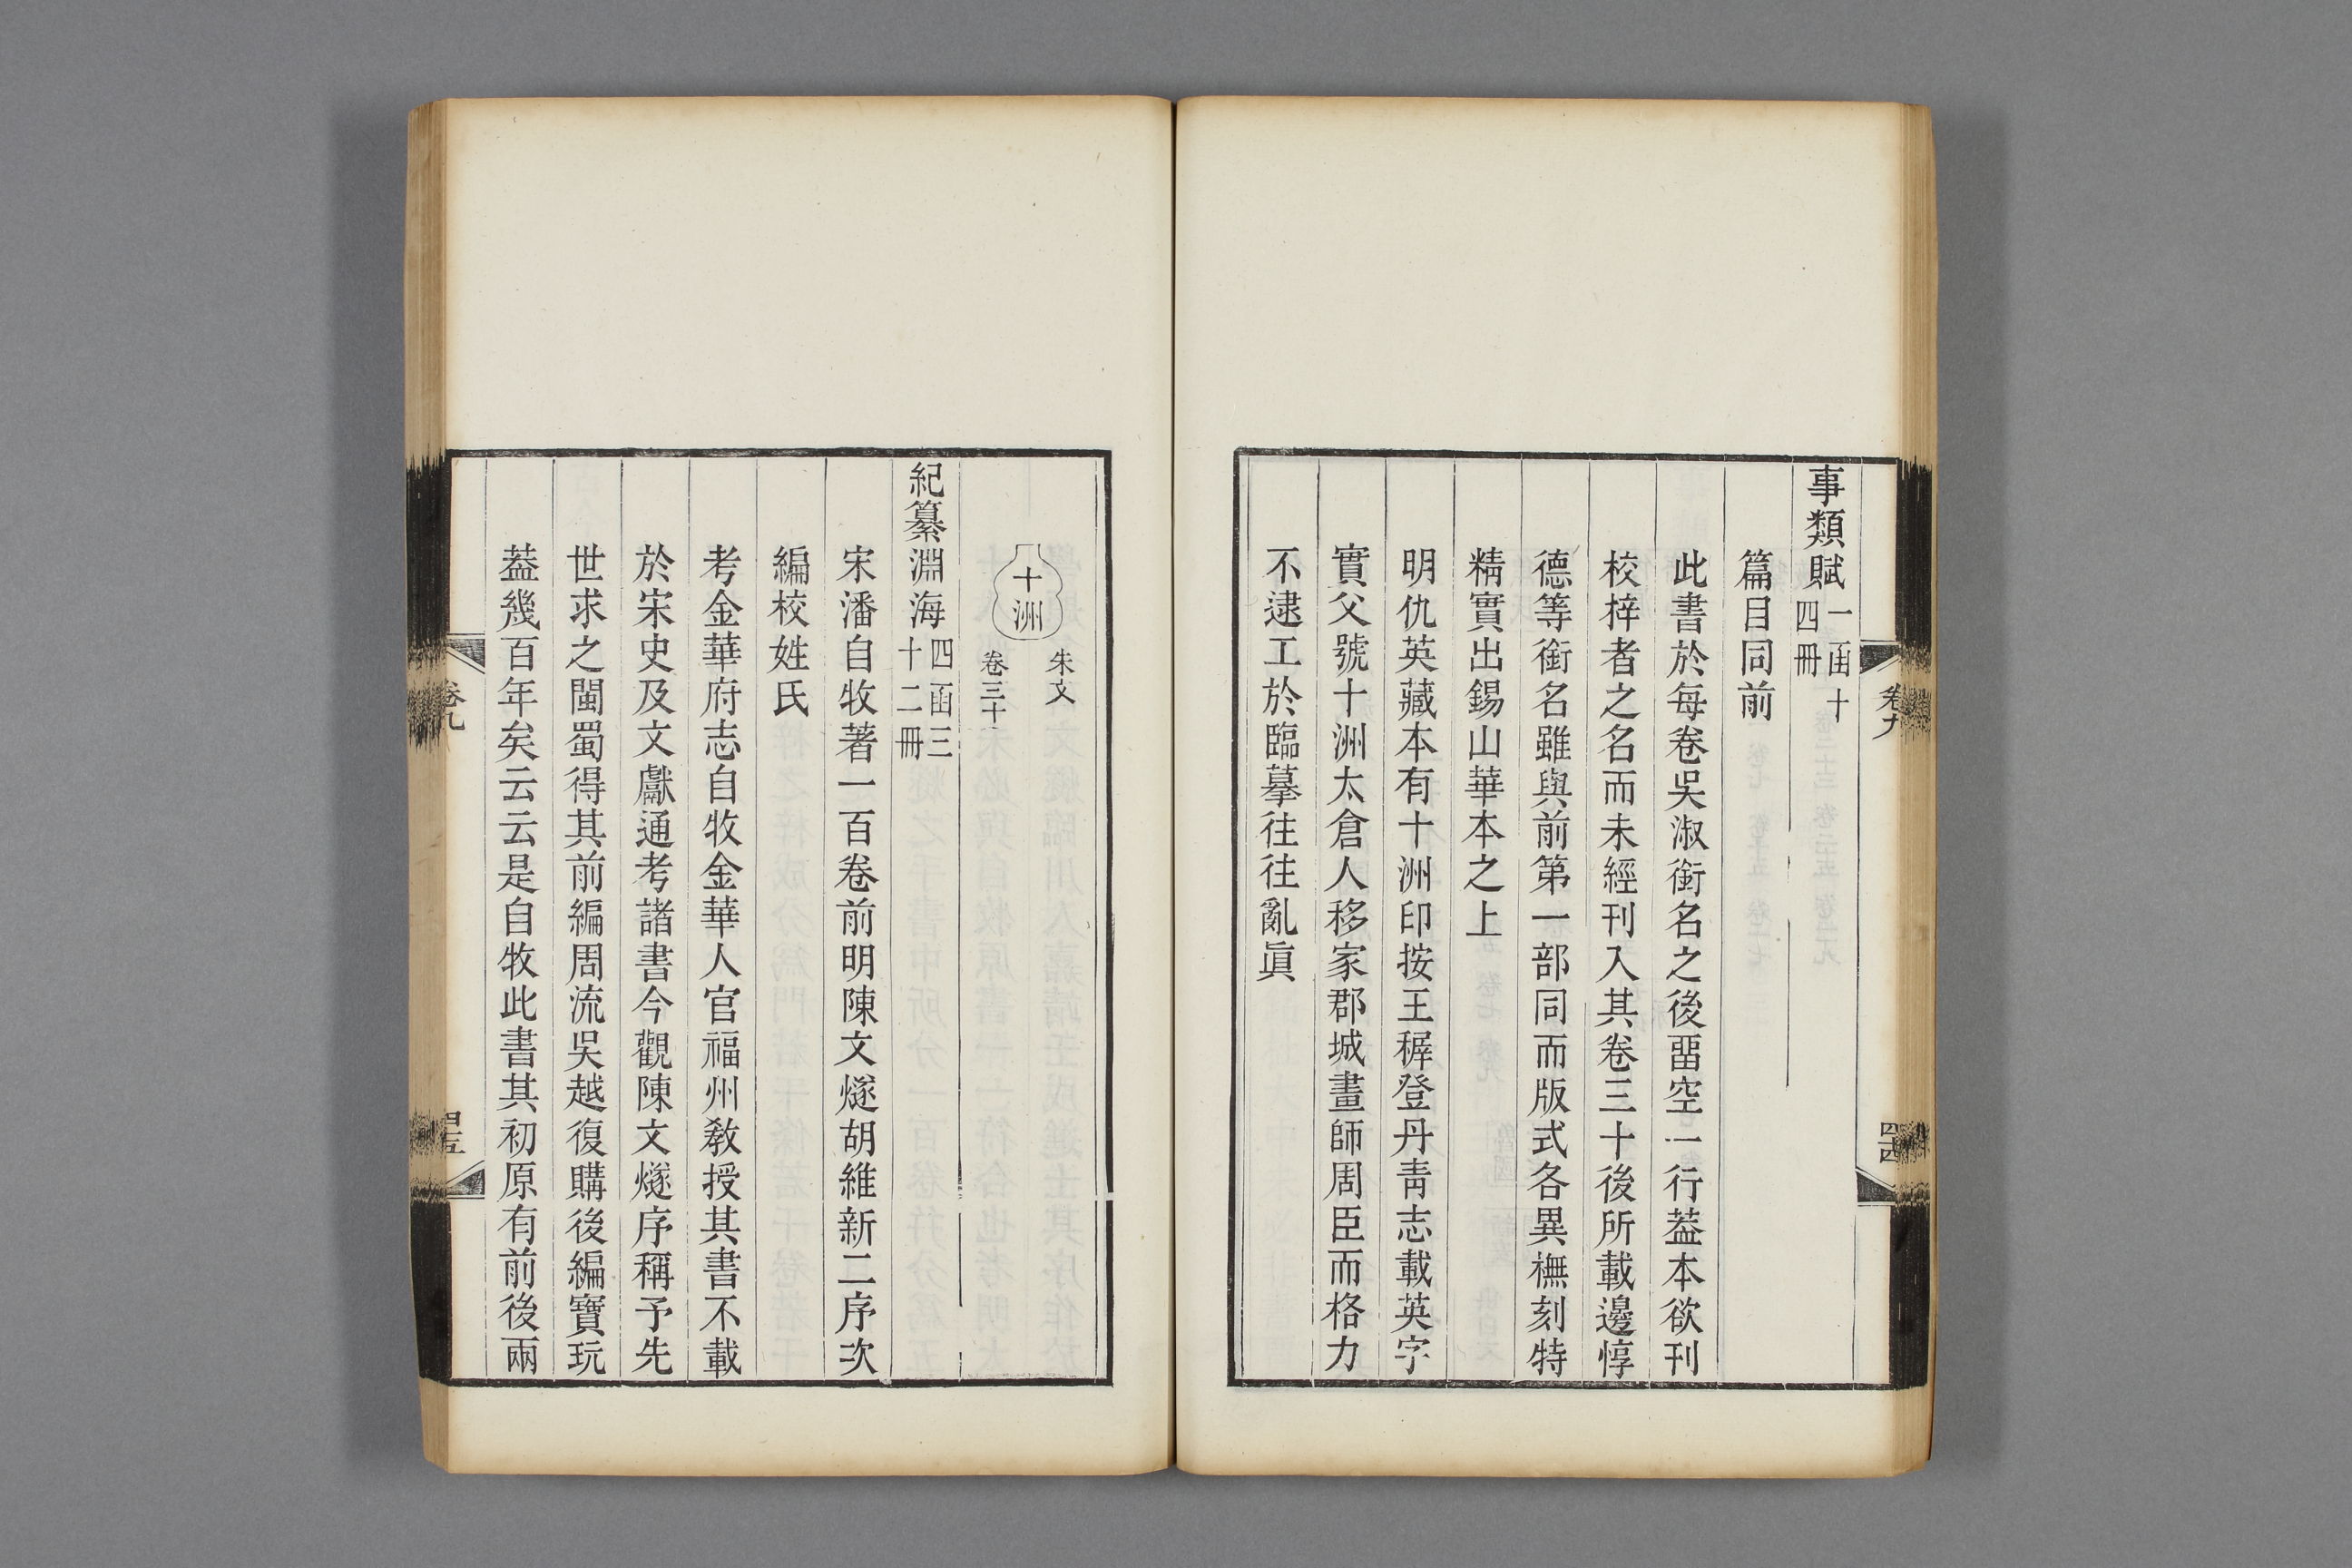 事類賦一函十四冊
篇目同前
此書於每卷吳淑銜名之後畱空一行葢本欲刊
校梓者之名而未經刊入其卷三十後所載邊惇
德等銜名雖與前第一部同而版式各異橅刻特
精實出錫山華本之上
明仇英藏本有十洲印按王穉登丹青志載英字
實父號十洲太倉人移家郡城畫師周臣而格力
不逮工於臨摹往往亂眞
卷九
四十四
十洲
朱文
卷三十
紀纂淵海四函三十二冊
宋潘自牧著一百卷前明陳文燧胡維新二序次
編校姓氏
考金華府志自牧金華人官福州敎授其書不載
於宋史及文獻通考諸書今觀陳文燧序稱予先
世求之閩蜀得其前編周流吳越復購後編寶玩
葢幾百年矣云云是自牧此書其初原有前後兩
卷九
四十五